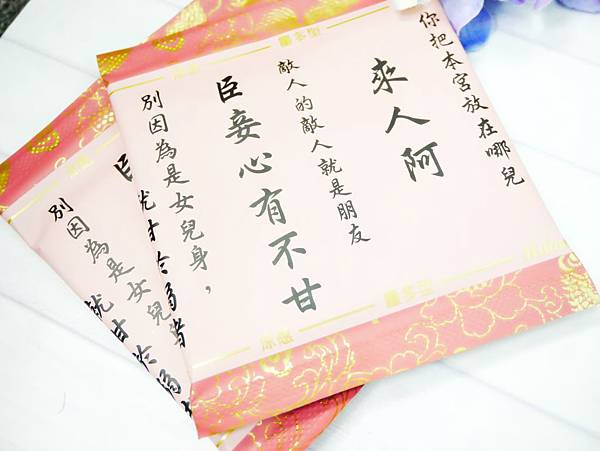 你把本宮放在哪兒
來人阿
敵人的敵人就是朋友
臣妾心有不甘
別因為是女兒身，
就甘於

臣
別因為是女兒
就甘於